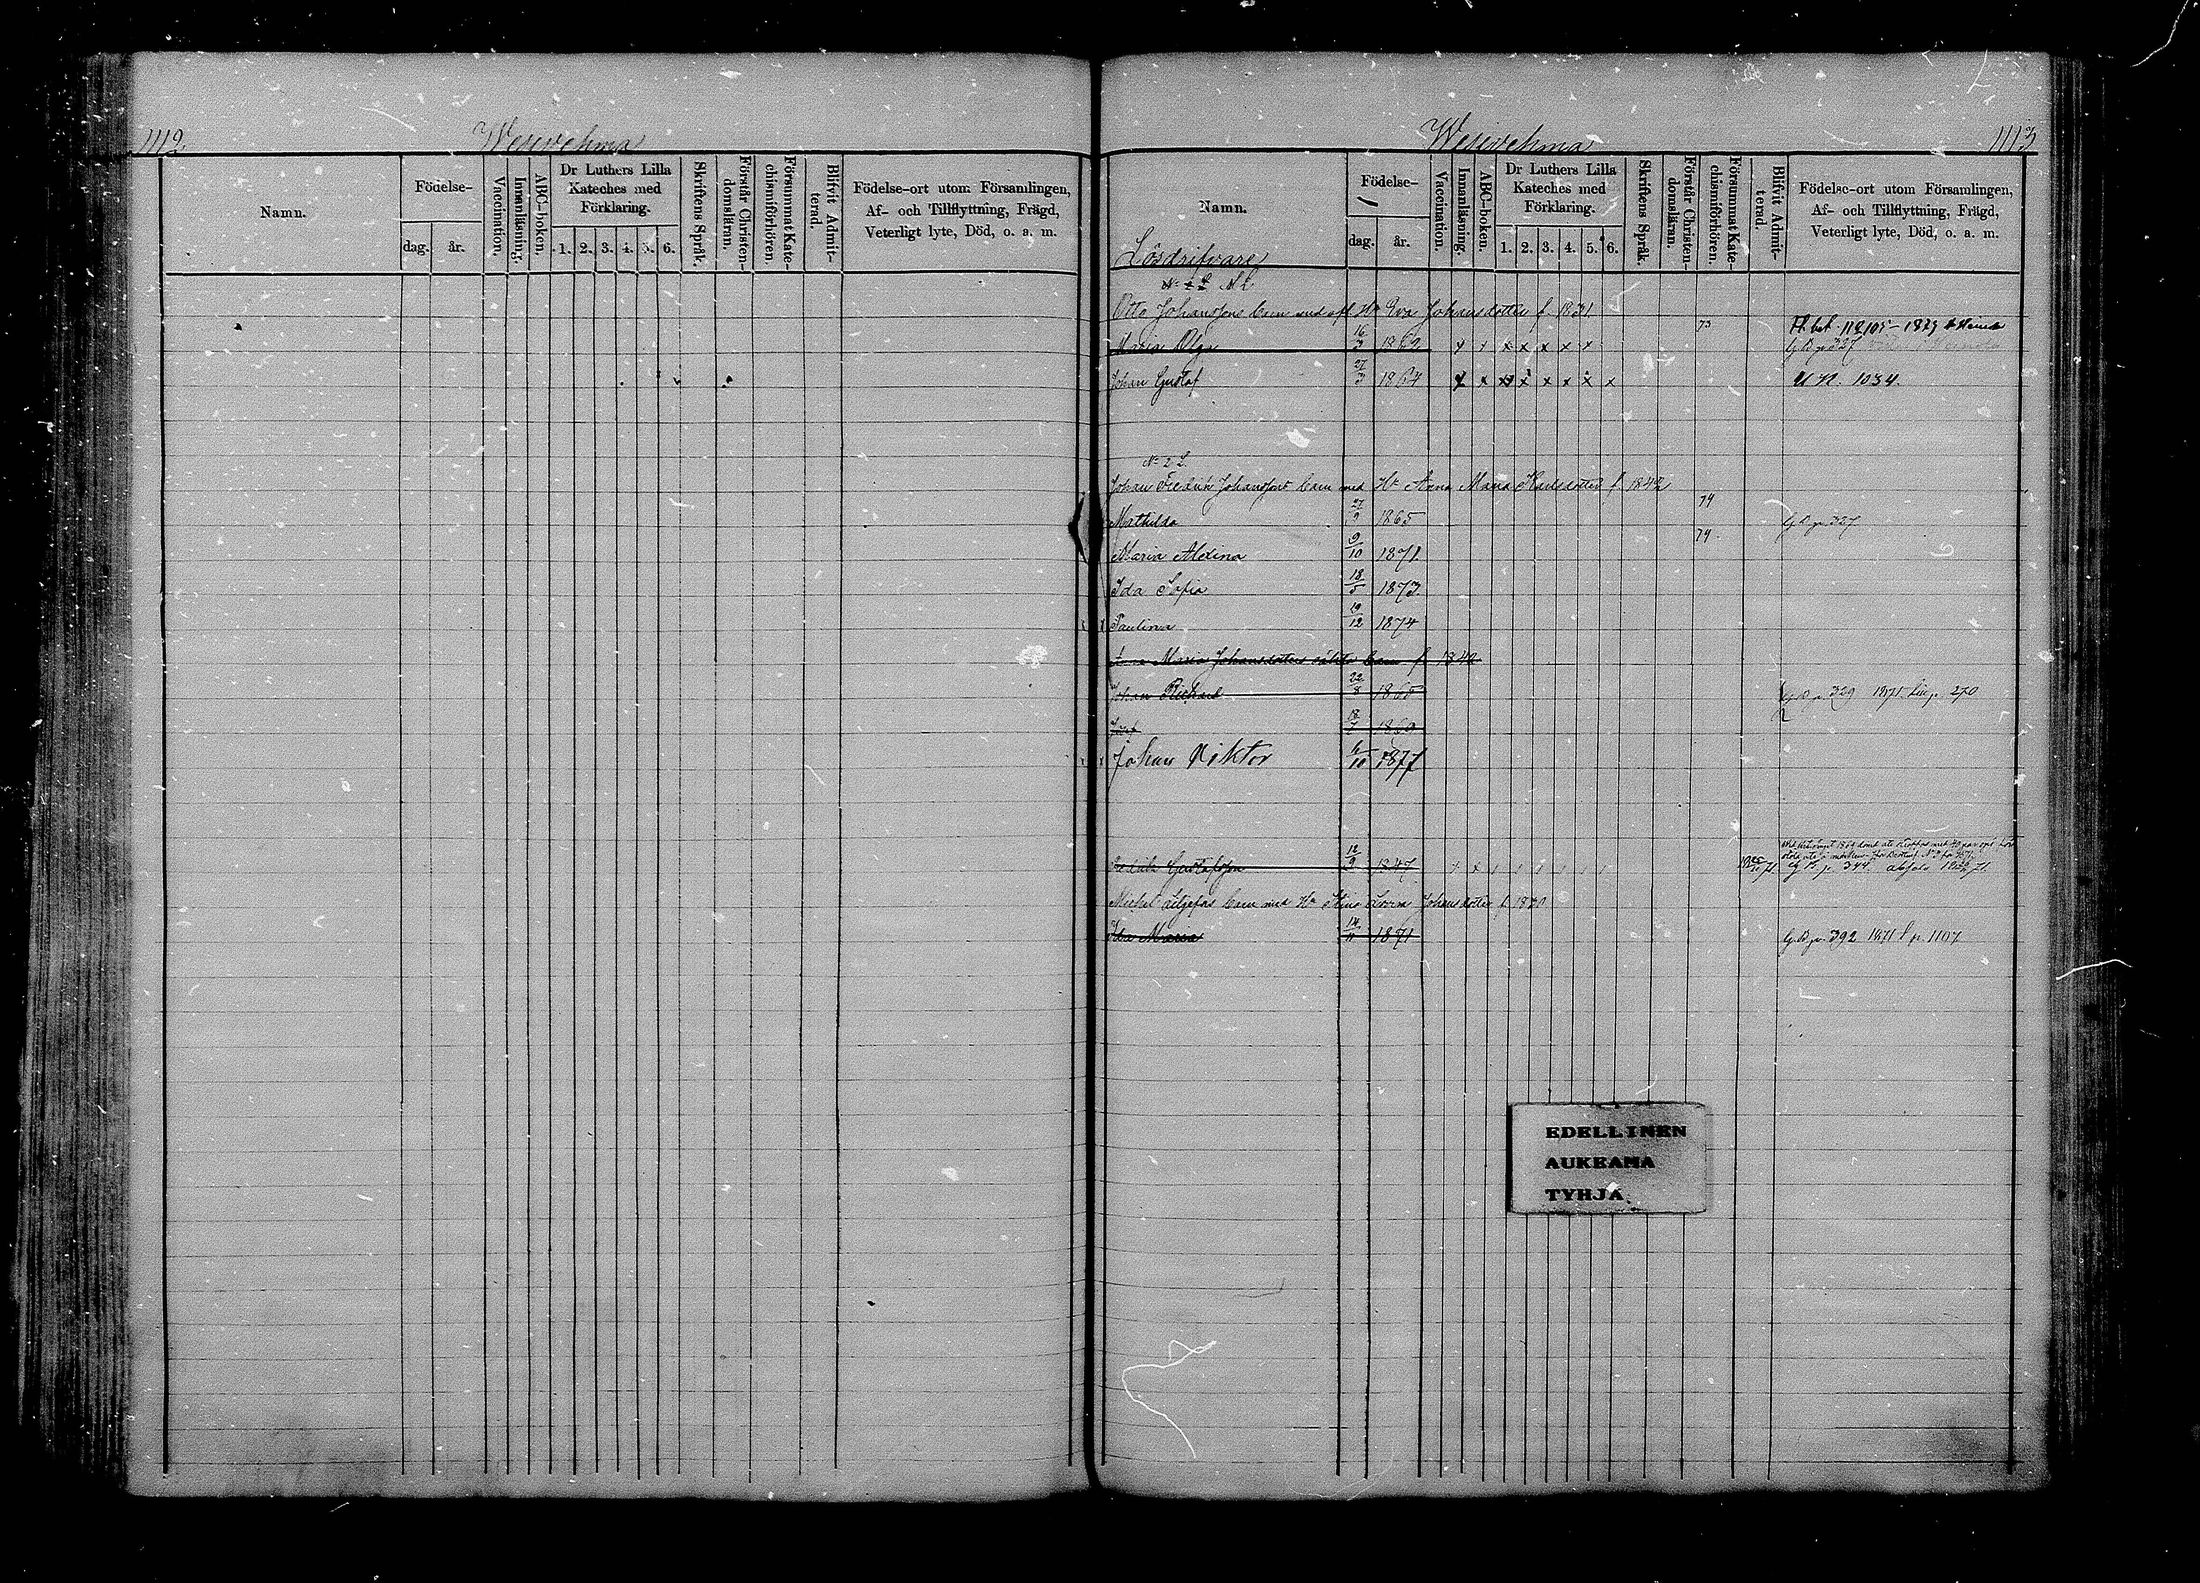 1112
Wesivehma
Namn.
Födelse-
dag.
år.
Vaccination.
Innanläsning.
ABC-boken.
Dr Luthers Lilla
Kateches med
Förklaring.
1. 2. 3. 4. 5. 6.
Skriftens Språk.
Förstår Christen-
domsläran.
Försummat Kate-
chismiförhören.
Blifvit Admit-
terad.
Födelse-ort utom Församlingen,
Af- och Tillflyttning, Frägd,
Veterligt lyte, Död, o. a. m.
Wesivehma
1113
Namn.
Födelse-
dag.
år.
Vaccination.
Innanläsning.
ABC-boken.
Dr Luthers Lilla
Kateches med
Förklaring.
1. 2. 3. 4. 5. 6.
Skriftens Språk.
Förstår Christen-
domsläran.
Försummat Kate-
chismiförhören.
Blifvit Admit-
terad.
Födelse-ort utom Församlingen,
Af- och Tillflyttning, Frägd,
Veterligt lyte, Död, o. a. m.
Lösdrifvare
Otto Johanssons barn med afl. Hu Eva Johansdotter f. 1831
73
Maria Olga 16/3 1862 x x x x x x x
G.B. p. 327
Johan Gustaf 27/3 1867 x x x x x x x x U.N. 1034.
No 2 L.
Johan Fredrik Johanssons barn med Hu Anna Maria Karlsdotter f. 1842
74
Mathilda 1865 G.B. p. 327
74
Maria Aldina 9/10 1871
Ida Sofia 18/5 1873
Paulina 19/12 1874
Maria Johansdotters barn f. 1842
Johan Richard 22/8 1865 G.B. p. 329 1871 p. 270
Johan Viktor 6/10 1877
Fredrik Gustafsson 12/9 1847 G.B. p. 344
Michel Liljefors barn med Hu Stina Lovisa Johansdotter f. 1820
Ida Maria 14/11 1871 G.B. p. 392 1871 L p. 1107
EDELLINEN
AUKEAMA
TYHJÄ